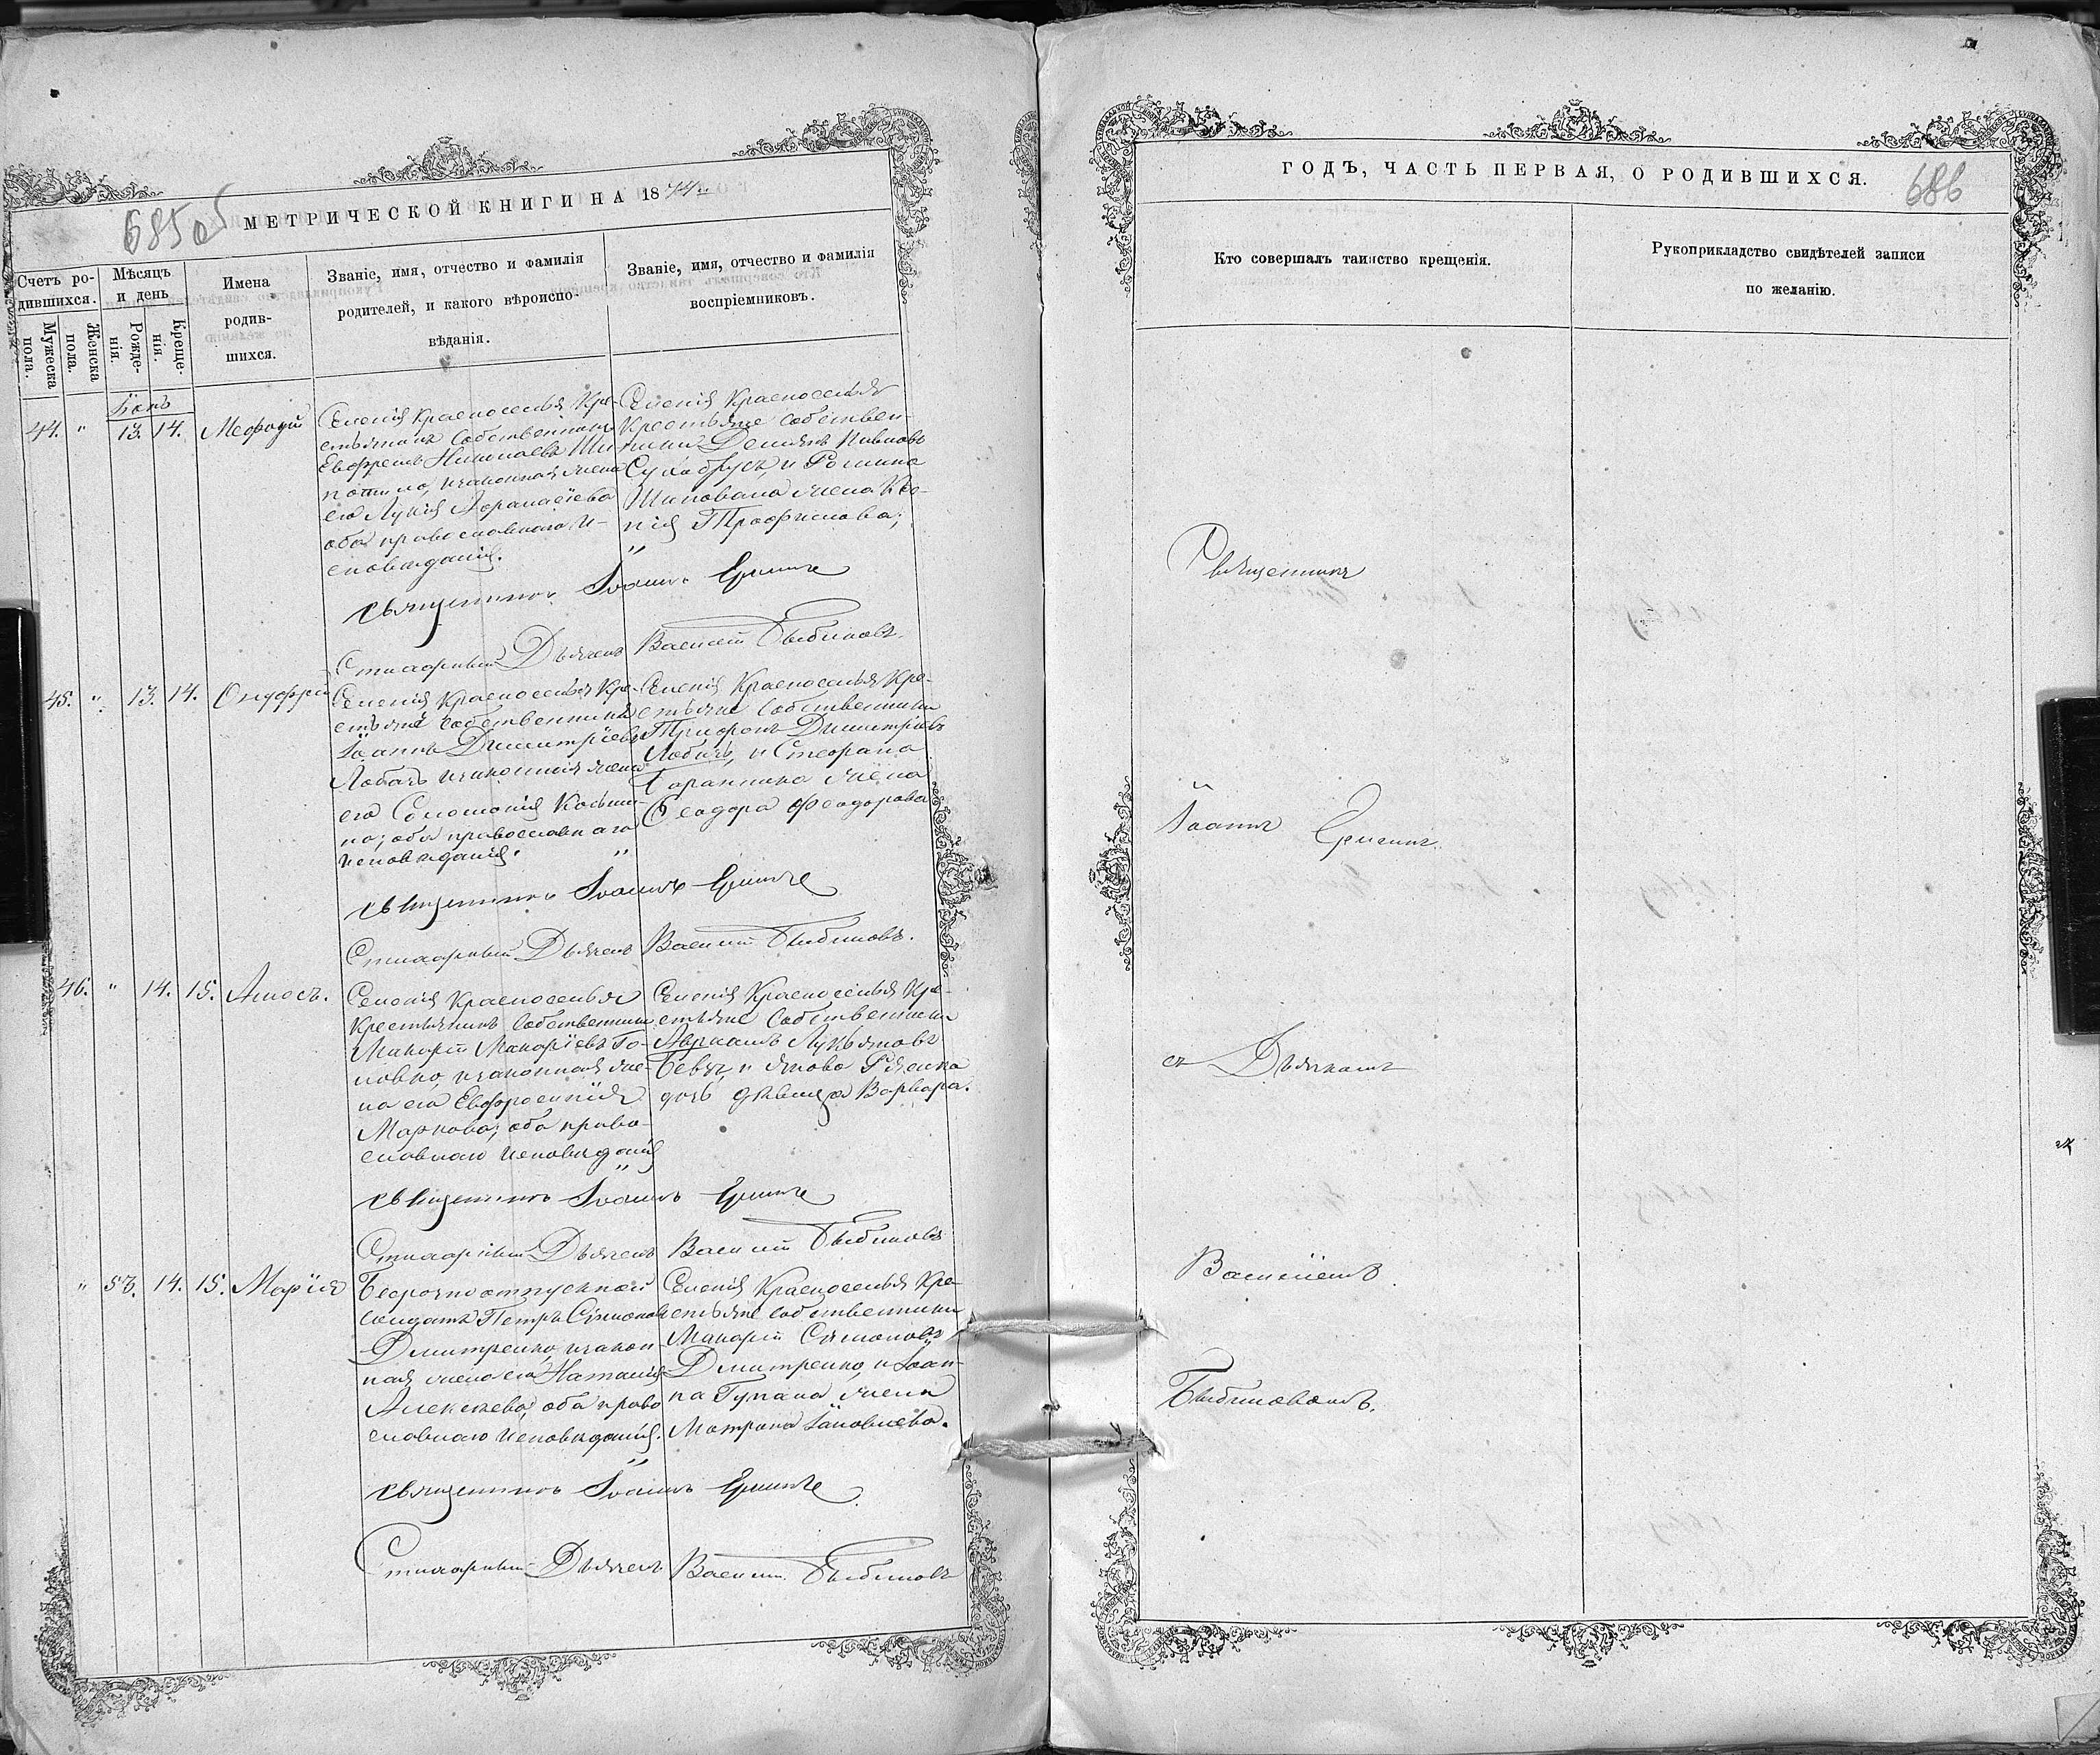 685 об
МЕТРИЧЕСКОЙ КНИГИ НА 1874 г.
Счетъ ро-
дившихся.
Мужеска
пола.
Женска
пола.
Мѣсяцъ
и день
Рожде-
нія.
Креще-
нія.
Имена
родив-
шихся.
Званіе, имя, отчество и фамилія
родителей, и какого вѣроиспо-
вѣданія.
Званіе, имя, отчество и фамилія
воспріемниковъ.
44. " 13. 14. Меѳодій
Селенія Красноселья Кре-
стьянинъ Собственникъ
Евфремъ Николаевъ Ши-
законная жена
его Лукія Афанасіева
оба православнаго и-
сповѣданія.
Селенія Красноселья
Крестьяне Собствен-
ники Демьянъ Павловъ
Сухобрусъ, и Романа
Шаповала жена Ксе-
нія Трофимова;
Священникъ Іоаннъ
Стихарный Дьячекъ Василій Быбиковъ.
45. " 13. 14. Онуфрій
Селенія Красноселья Кре-
стьяне Собственники
Іоаннъ Димитріевъ
Лобачъ и законная жена
его Соломонія Косьми-
на; оба православнаго
исповѣданія.
Селенія Красноселья Кре-
стьяне Собственники
Трифонъ Димитріевъ
Лобачъ, и Стефана
жена
Ѳеодора Феодорова
Священникъ Іоаннъ
Стихарный Дьячекъ Василій Быбиковъ.
46. " 14. 15. Амосъ.
Селенія Красноселья
Крестьянинъ Собственникъ
Макарій Макаріевъ Го-
ловко, и законная же-
на его Евфросинія
Маркова; оба право-
славнаго исповѣданія
Селенія Красноселья Кре-
стьяне Собственники
Авраамъ Лукьяновъ
Бевзъ, и Якова
дочь дѣвица Варвара.
Священникъ Іоаннъ
Стихарный Дьячекъ Василій Быбиковъ
" 53. 14. 15. Марія
Безсрочноотпускной
Солдатъ Петръ Симоновъ
Дмитренко, и закон-
ная жена его Наталія
Алексѣева, оба право
славнаго исповѣданія.
Селенія Красноселья Кре-
стьяне собственники
Макарій Симоновъ
Дмитренко, и Іоан-
на Гупала жена
Матрона Іаковлева.
Священникъ Іоаннъ
Стихарный Дьячекъ Василій Быбиковъ
ГОДЪ, ЧАСТЬ ПЕРВАЯ, О РОДИВШИХСЯ.
686
Кто совершалъ таинство крещенія.
Рукоприкладство свидѣтелей записи
по желанію.
Священникъ
Іоаннъ
съ Дьячкомъ
Василіемъ
Быбиковомъ.